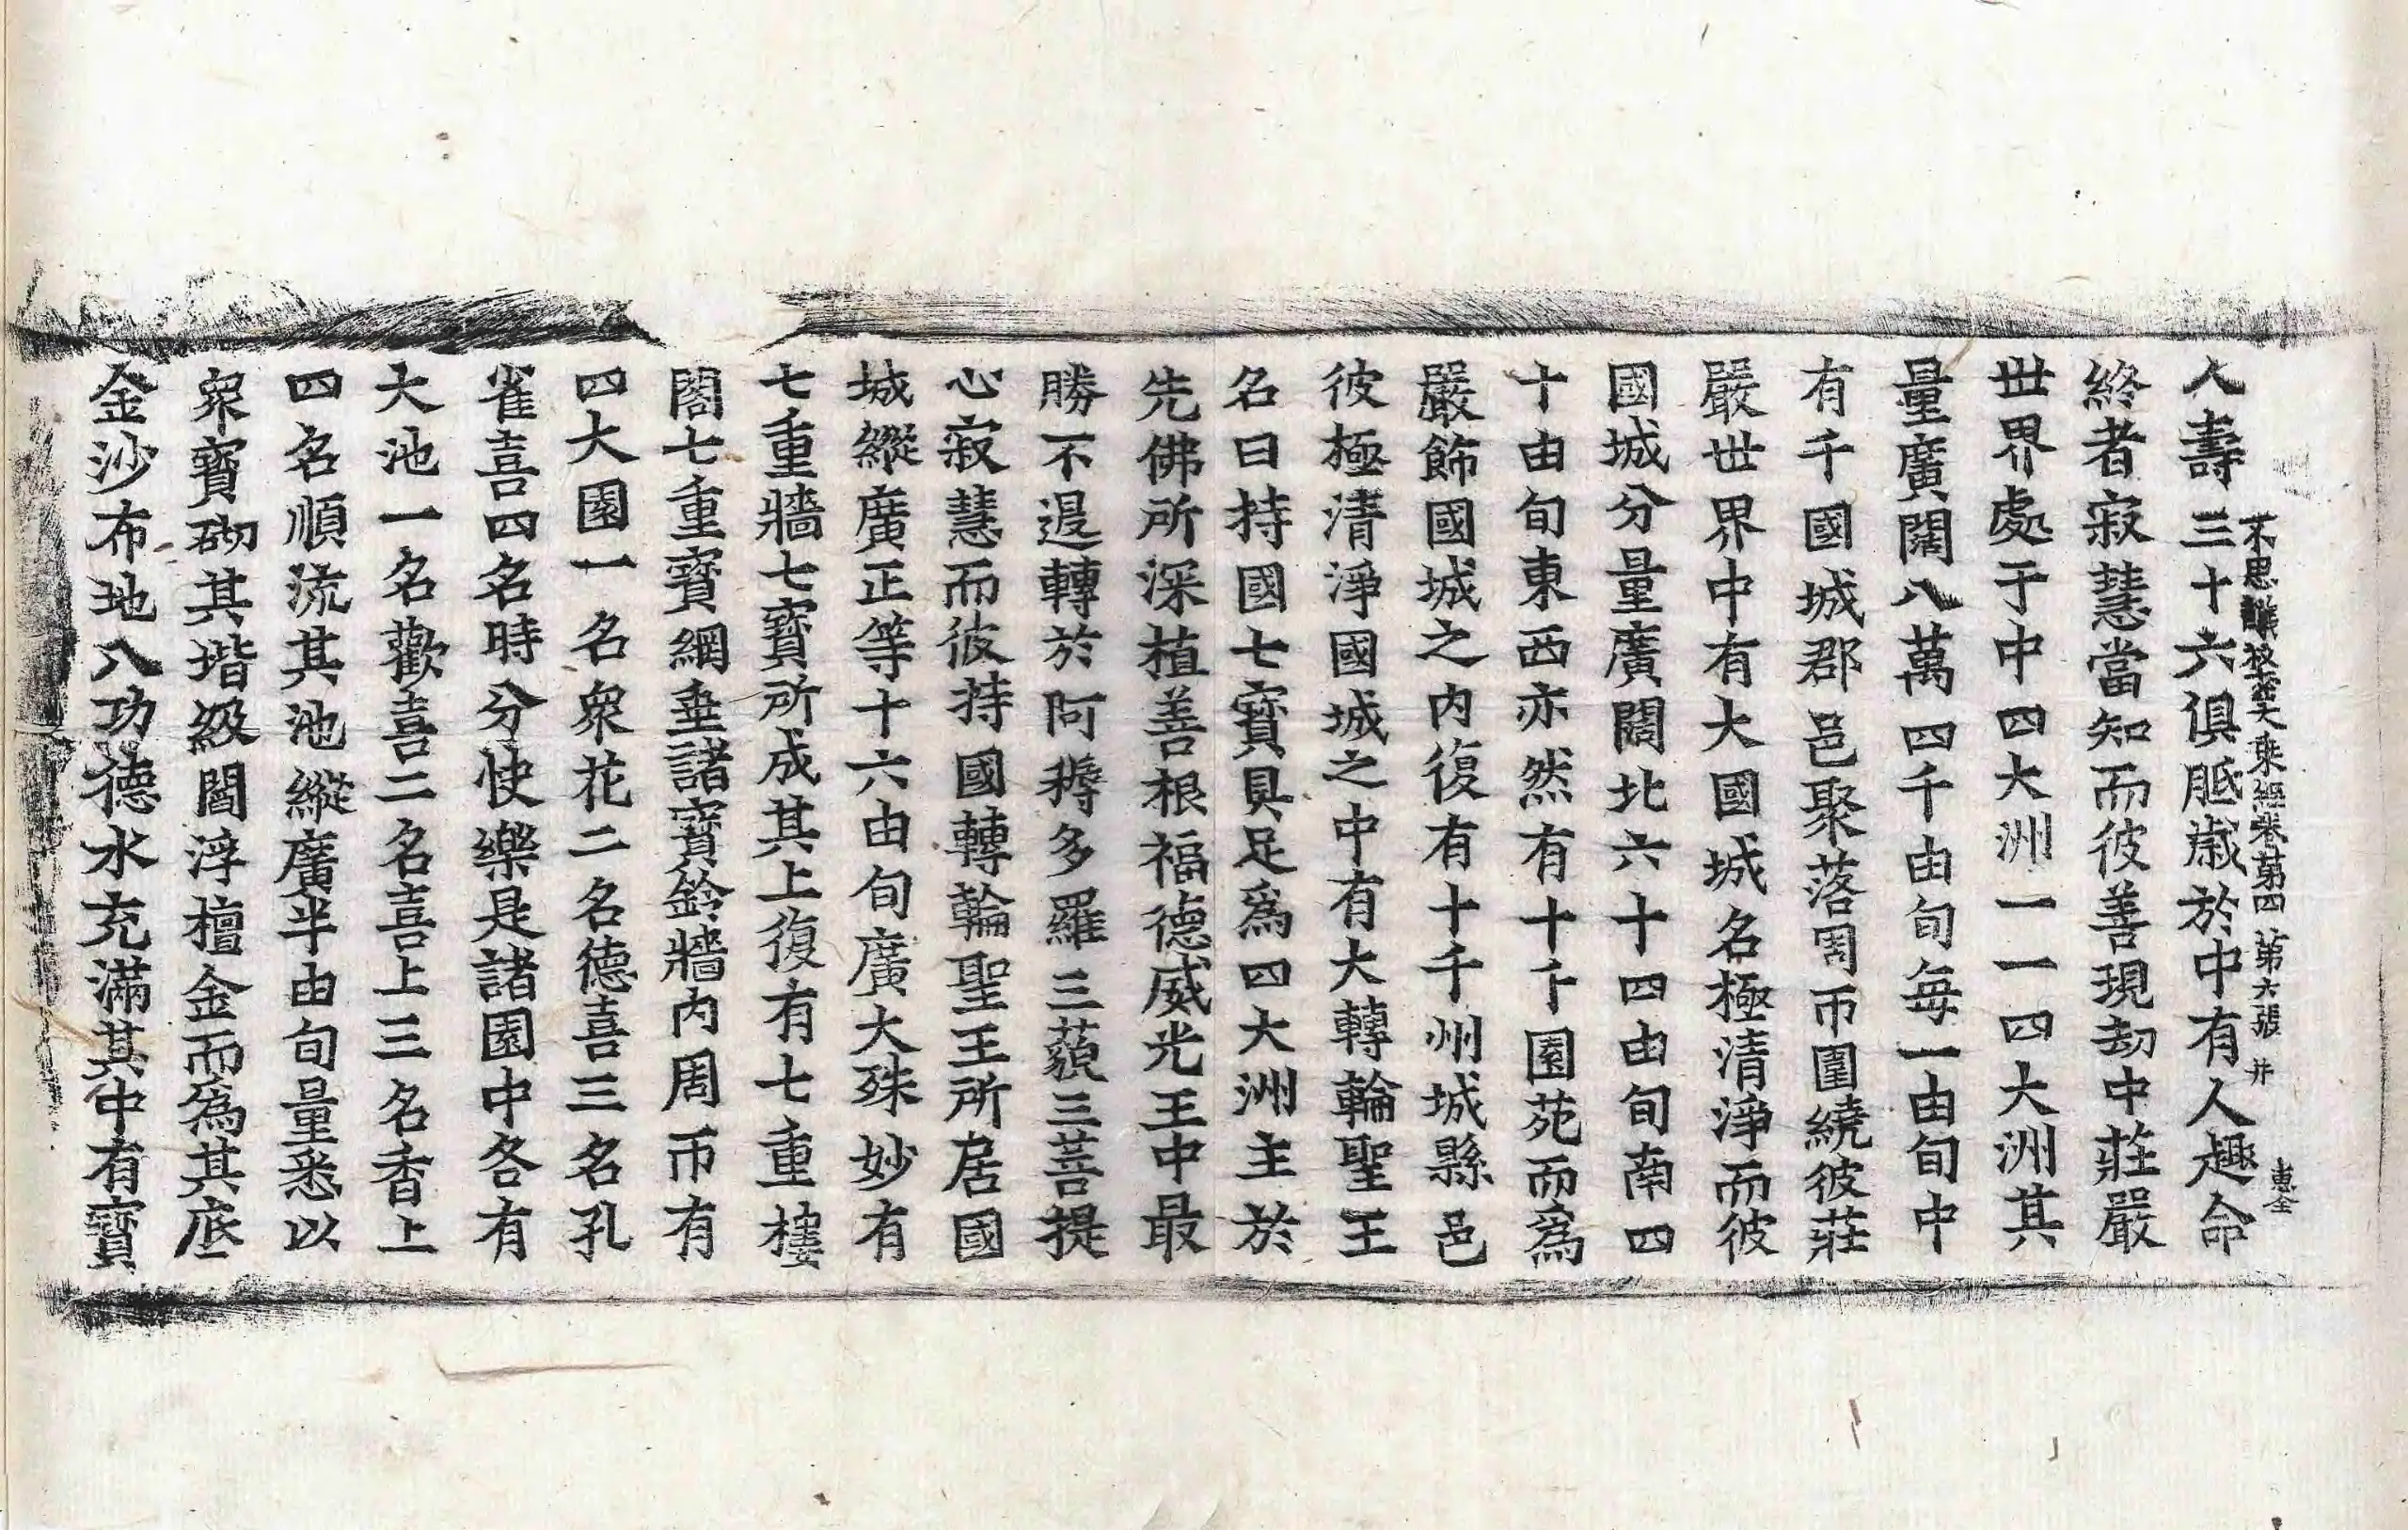 不思議秘密大乘經卷第四 第六張 井
惠全
人壽三十六俱胝歲於中有人趣命
終者寂慧當知而彼善現劫中莊嚴
世界處于中四大洲一一四大洲其
量廣闊八萬四千由旬每一由旬中
有千國城郡邑聚落周帀圍繞彼莊
嚴世界中有大國城名極清淨而彼
國城分量廣闊北六十四由旬南四
十由旬東西亦然有十千園苑而爲
嚴飾國城之內復有十千州城縣邑
彼極清淨國城之中有大轉輪聖王
名曰持國七寶具足爲四大洲主於
先佛所深植善根福德威光王中最
勝不退轉於阿耨多羅三藐三菩提
心寂慧而彼持國轉輪聖王所居國
城縱廣正等十六由旬廣大殊妙有
七重牆七寶所成其上復有七重樓
閣七重寶網垂諸寶鈴牆內周帀有
四大園一名衆花二名德喜三名孔
雀喜四名時分快樂是諸園中各有
大池一名歡喜二名喜上三名香上
四名順流其池縱廣半由旬量悉以
衆寶砌其堦級閻浮檀金而爲其底
金沙布地八功德水充滿其中有寶